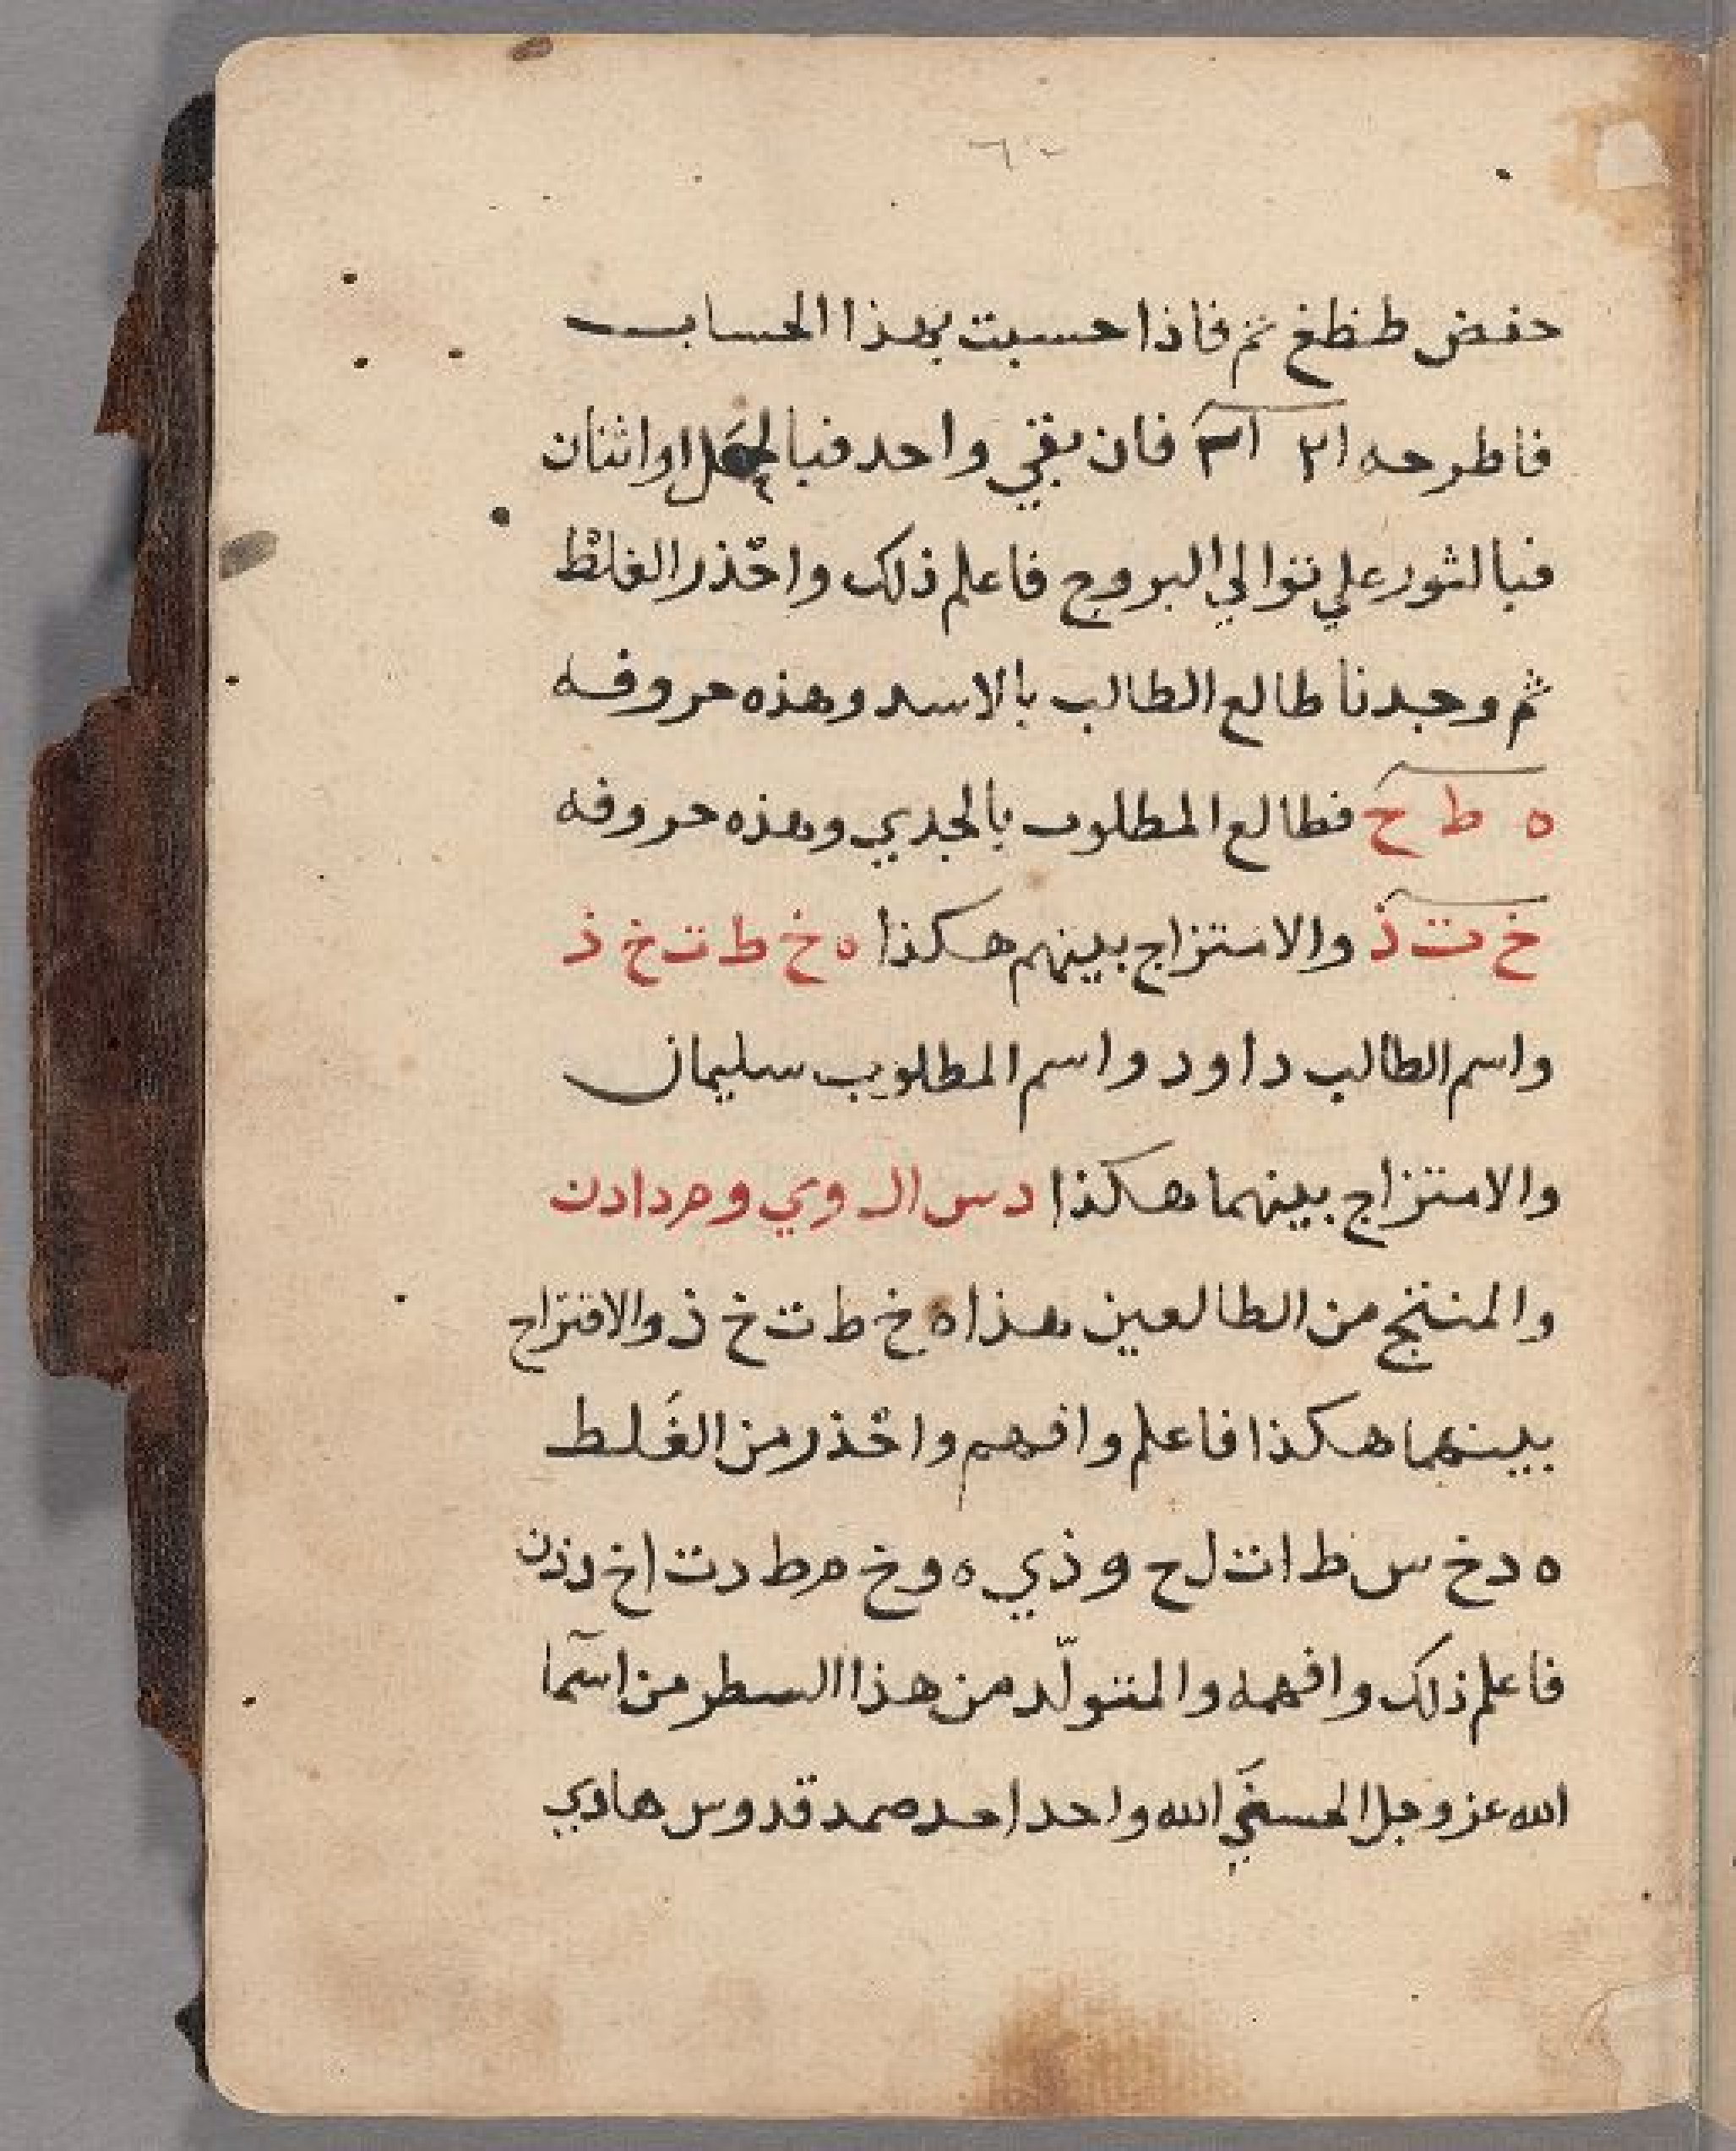 حفض طظغ ثم فاذا حسبت بهذا الحساب
فاطرحه ١٢ فان بقي واحد فبالحمل او اثنان
فبالثور علي توالي البروج فاعلم ذلك واحْذر الغلطْ
ثم وجدنا طالع الطالب بالاسد وهذه حروفه
ه ط ح فطالع المطلوب بالجدي وهذه حروفه
خ ت ذ والامتزاج بينهم هكذا ه خ ط ت خ ذ
واسم الطالب داود واسم المطلوب سليمان
والامتزاج بينهما هكذا د س ا ل و ي و م د ا د ن
والمنتج من الطالعين هذا ه خ ط ت خ ذ والامتزاج
بينهما هكذا فاعلم وافهم واحْذر من الغَلط
ه د خ س ط ا ت ل ح و ذ ي ه و خ م ط د ت ا خ د ذ ن
فاعلم ذلك وافهمه والمتولّد من هذا السطر من اسمآ
الله عز وجل الحسني الله واحد احد صمد قدوس هادي